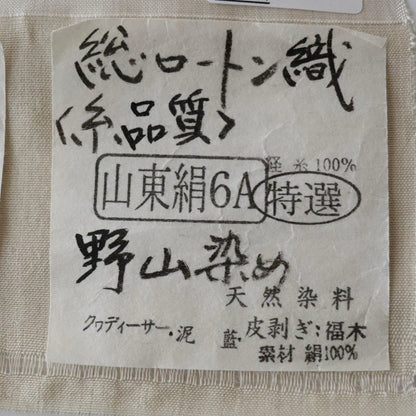 総ロートン織
<糸品質>
経糸100%
山東絹6A 特選
野山染め
天然染料
クヮディーサー・泥 藍・皮剥ぎ:福木
素材 絹100%